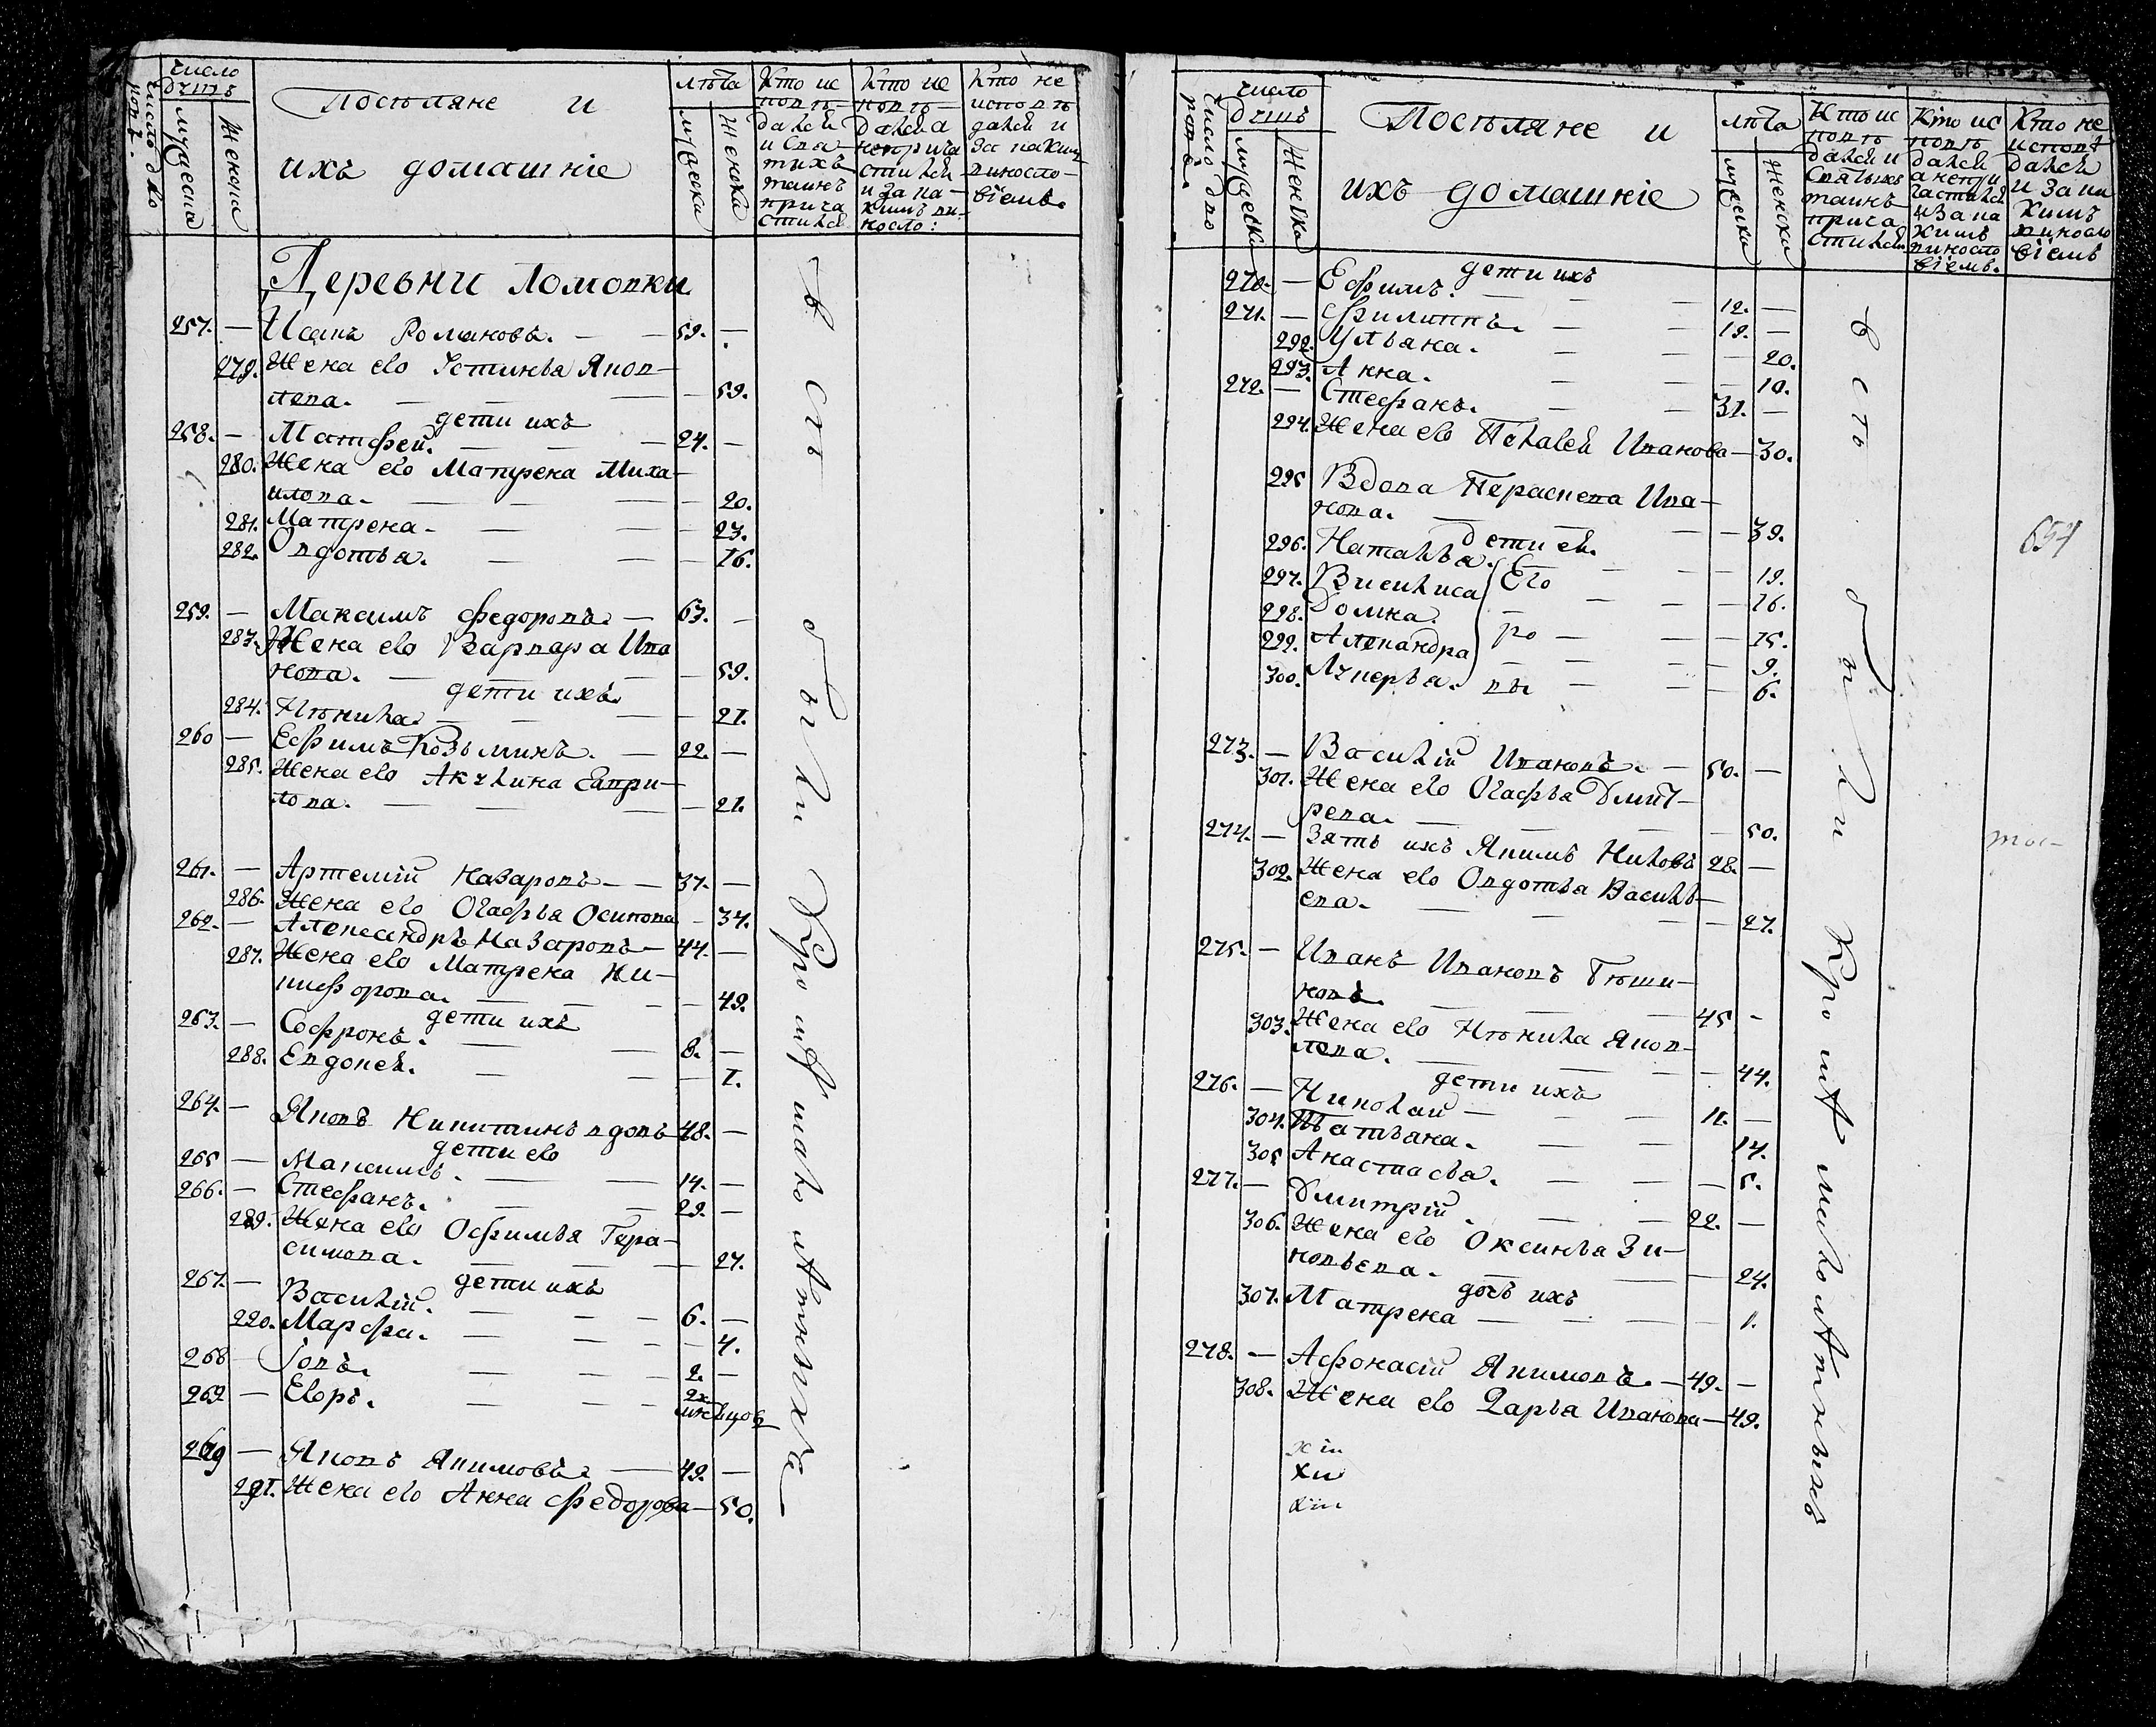 число дворовъ.
число душъ
мужеска
женска
Поселяне и
ихъ домашніе
лѣта
мужеска
женска
Кто ис
повѣ-
дался
и свя-
тихъ
таинъ
прича
стился
Кто ис
повѣ-
дался а
непріча
стился
и за ка-
кимъ ви-
носло:
Кто не
исповѣ
дался и
за каким
виносло-
віемъ.
Деревни Ломовки
257. — Иванъ Романовъ. — 59. —
279. Жена его Устинья Яков-
лева. — 59.
дети ихъ
258. — Матфей. — 24. —
280. Жена его Матрена Миха-
илова. — 20.
281. Матрена. — 23.
282. Овдотья. — 16.
259. — Максимъ Федоровъ. — 63. —
283. Жена его Варвара Ива
нова. — 59.
дети ихъ
284. Нѣнила. — 21.
260 — Ефимъ Козьминъ. — 22. —
285. Жена его Акулина Гаври-
лова. — 21.
261. — Артемій Назаровъ — 37. —
286. Жена его Огафья Осипова — 34.
262. — Александръ Назаровъ — 44. —
287. Жена его Матрена Ни-
кифорова. — 49.
дети ихъ
263. — Софронъ. — 8. —
288. Евдокея. — 1.
264. — Яковъ Никитинъ вдовъ 48. —
дети его
265 — Максимъ. — 14. —
266. — Стефанъ. — 29. —
289. Жена его Офимья Гера-
симова. — 27.
дети ихъ
267. — Василій. — 6. —
220. Марфа. — 4.
268 — Іовъ. — 2. —
269 — Егоръ. — 2х
мѣсяцовъ
269 — Яковъ Якимовъ. — 49. —
291. Жена его Анна Федорова — 50.
всѣ были Кромѣ малолѣтныхъ
число дво
ровъ.
число
душъ
мужеска
Женска
Поселяне и
ихъ домашніе
лѣта
мужеска
женска
Кто ис
повѣ
дался и
святыхъ
таинъ
прича
стился
Кто ис
повѣ
дался
а непри
частился
и за ка
кимъ
виносло
віемъ.
Кто не
исповѣ
дался
и за ка
кимъ
виносло
віемъ
дети ихъ
270. — Ефимъ. — 12. —
271. — Филиппъ. — 19. —
292. Ульяна. — 20.
293. Анна. — 10.
272. — Стефанъ. — 31. —
294. Жена его Пелагея Иванова — 30.
295 Вдова Парасковя Ива-
нова. — 39.
дети ея.
296. Наталья. — 19.
297. Василиса — 16.
298. Домна. — 15.
299. Александра — 9.
300. Лукерья. — 6.
Его
ро
въ
273. — Василій Ивановъ. — 50. —
301. Жена его Огафья Дмит-
рева. — 50.
274. — Зять ихъ ЯкимъНиловъ 28. —
302. Жена его Овдотья Василь-
ева. — 27.
275. — Иванъ Ивановъ Тюши-
новъ. — 45 —
303. Жена его Нѣнила Яков-
лева. — 44.
дети ихъ
276. — Николай — 11. —
304. Татьяна. — 14.
305 Анастасья. — 5.
277. — Дмитрій. — 22. —
306. Жена его Оксинья Зи-
новьева. — 24.
дочь ихъ
307. Матрена — 1.
278. — Афонасій Якимовъ. — 49. —
308. Жена его Дарья Иванова — 49.
всѣ были Кромѣ малолѣтныхъ
654